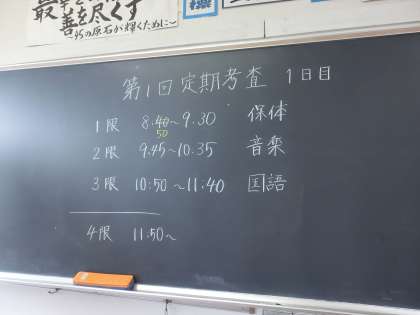 最善を尽くす
45の原石が輝くために〜
第1回 定期考査 1日目
1限 8:40〜9:30 保体
50
2限 9:45〜10:35 音楽
3限 10:50〜11:40 国語
4限 11:50〜